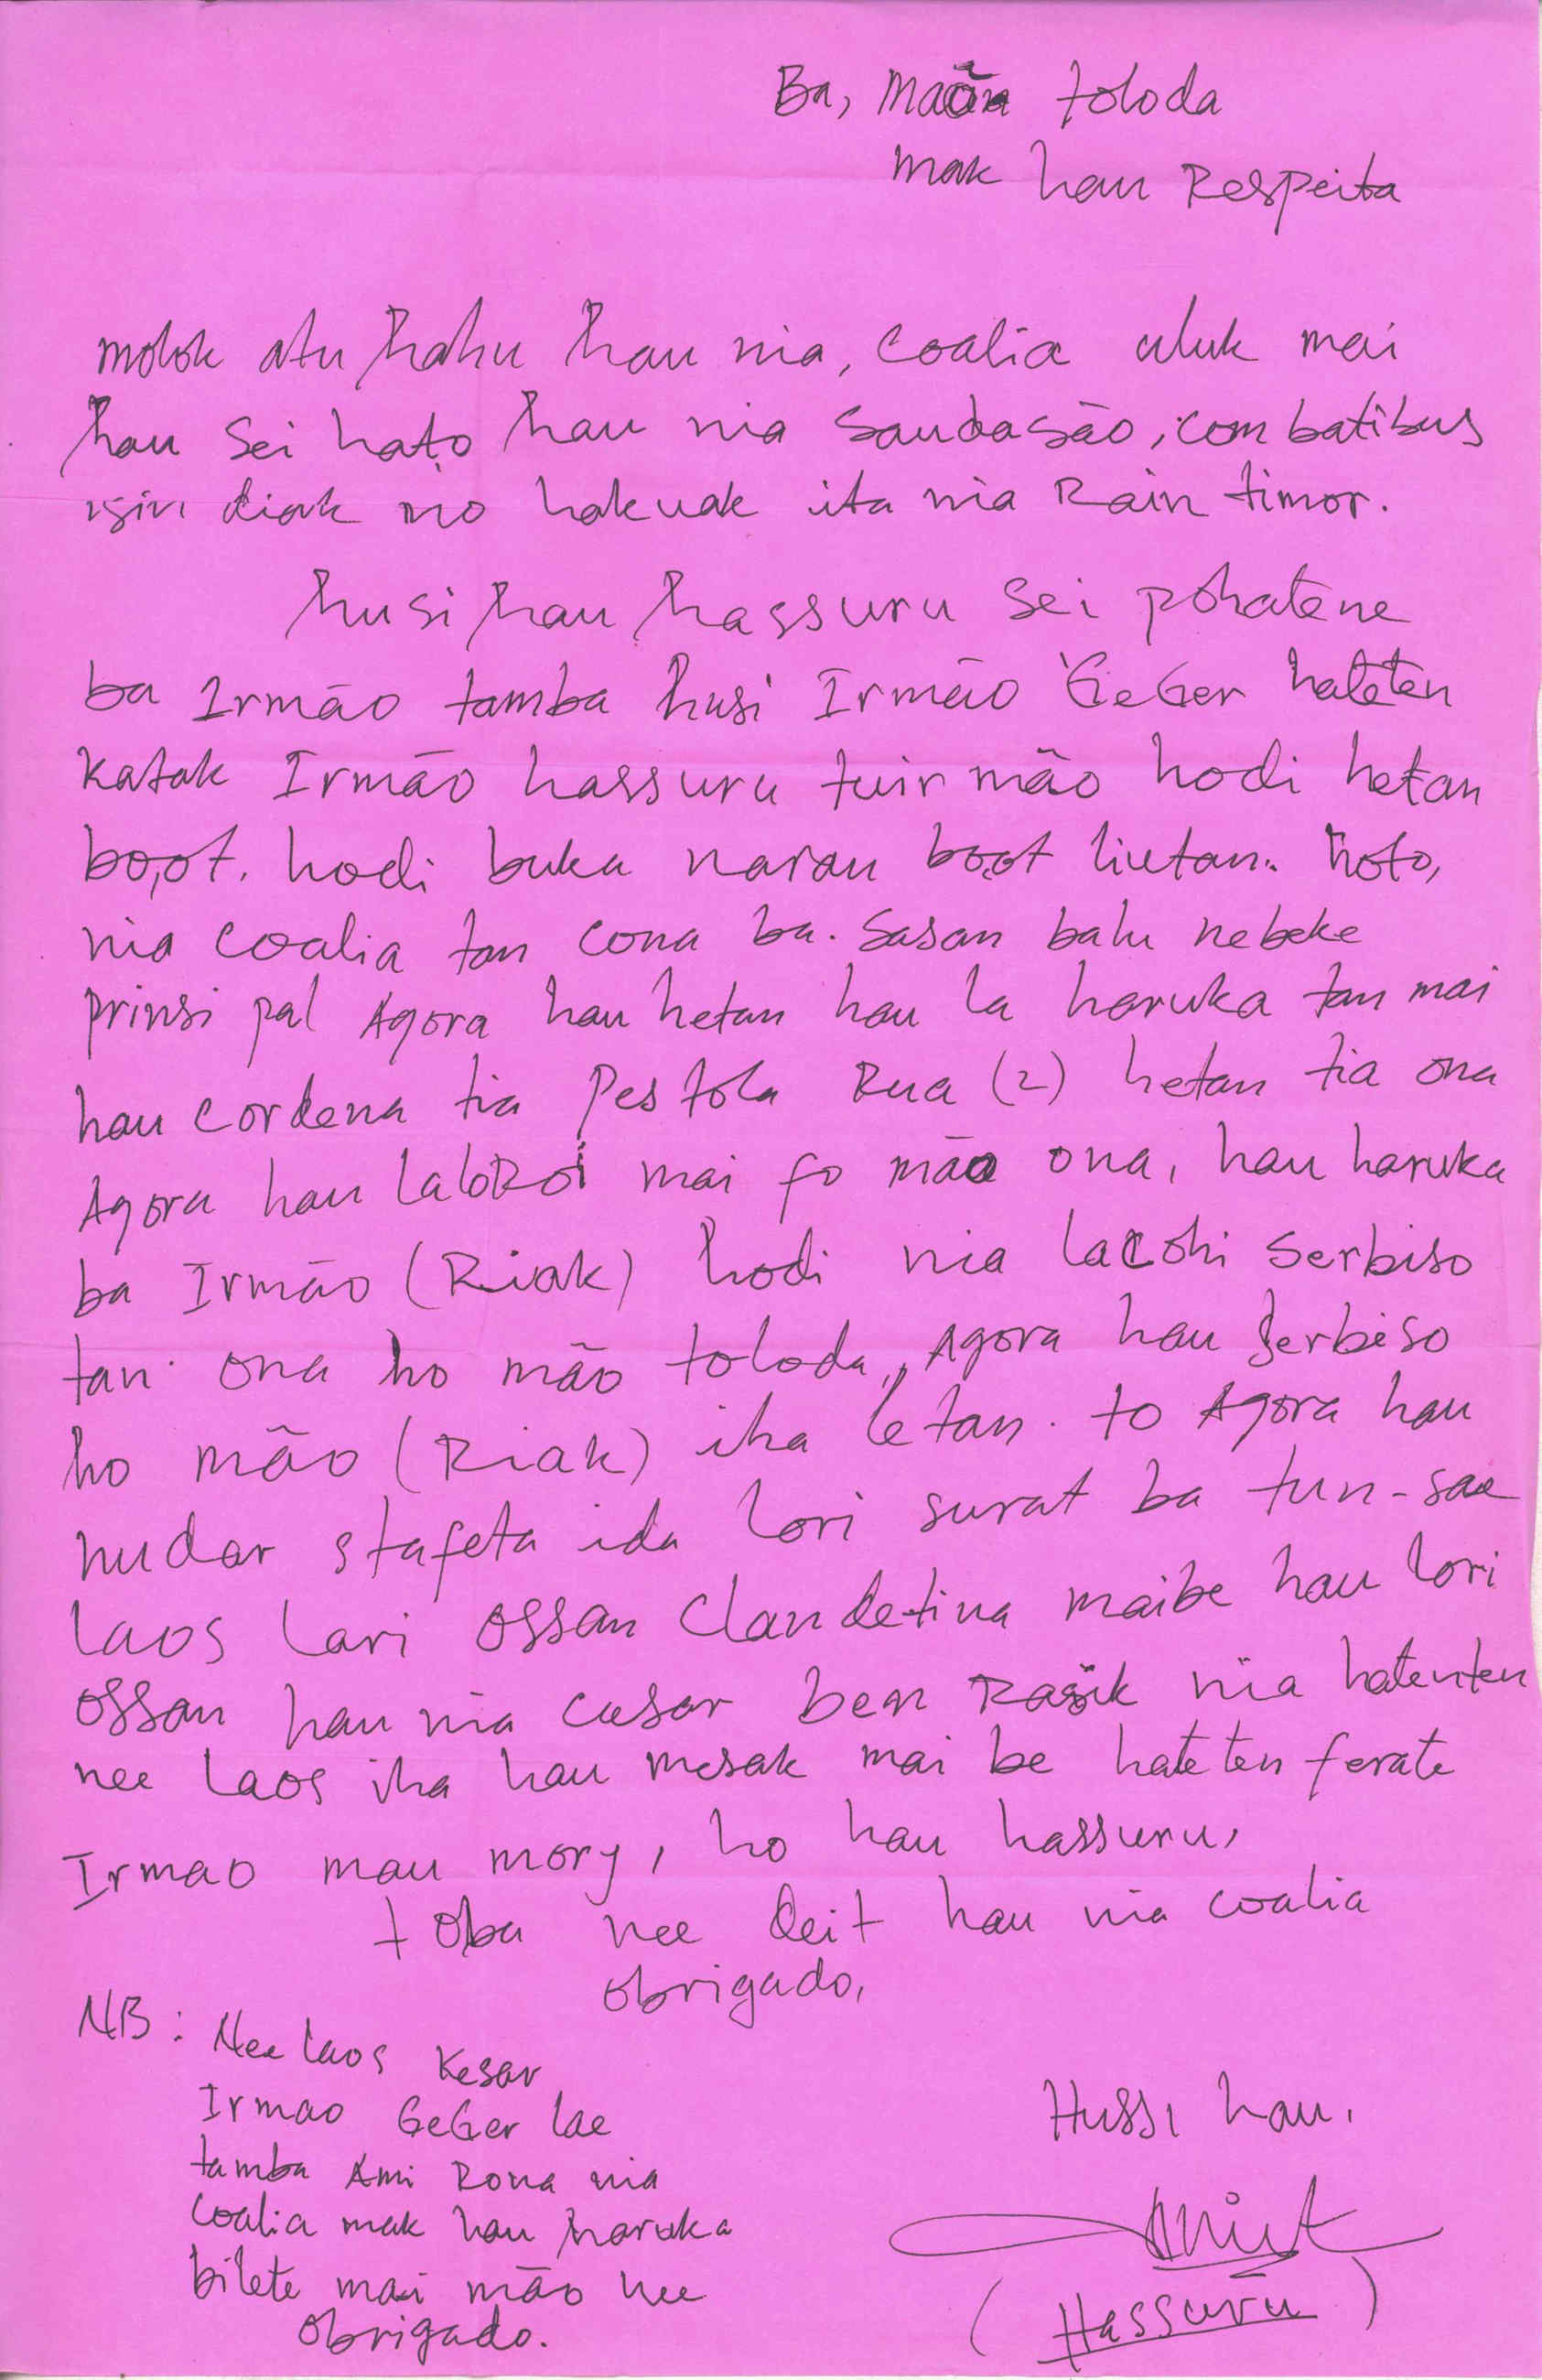 Ba, Maõn toloda
mak hau Respeita
molok atu hahu hau nia, coalia uluk mai
hau sei hato hau nia saudasão, combatibus
isin diak no hakuak ita nia Rain timor.
husi hau hassuru sei pohatene
ba Irmão tamba husi Irmão GeGer hateten
katak Irmão hassuru tuir mão hodi hetan
boot. hodi buka naran boot liutan. hoto,
nia coalia tan cona ba. sasan balu nebeke
prinsi pal Agora hau hetan hau la haruka tan mai
hau cordena tia Pestola Rua (2) hetan tia ona
Agora hau laloRoi mai fo mão ona, hau haruka
ba Irmão (Riak) hodi nia lacohi serbiso
tan ona ho mão toloda, Agora hau serbiso
ho mão (Riak) iha letan. to Agora hau
nudar stafeta ida lori surat ba tun-sae
laos lari ossan clandetina maibe hau lori
ossan hau nia cosar ben Rasik nia hatenten
nee laos iha hau mesak mai be hateten ferate
Irmao mau mory, ho hau hassuru,
toba nee deit hau nia coalia
obrigado,
NB: Nee laos Kesar
Irmao GeGer lae
tamba Ami Rona nia
coalia mak hau haruka
bilete mai mão nee
obrigado.
Hussi hau.
(Hassuru)